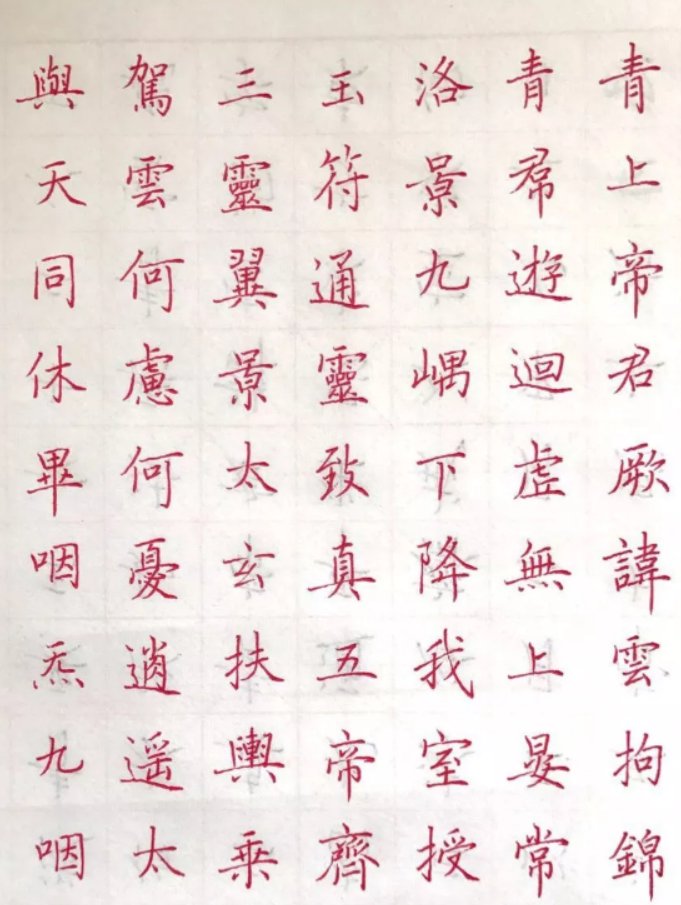 青上帝君厥諱雲拘錦
青帬遊迴虛無上晏常
洛景九嵎下降我室授
玉符通靈致真五帝齊
三靈翼景太玄扶輿乗
駕雲何慮何憂逍遥太
與天同休畢咽炁九咽